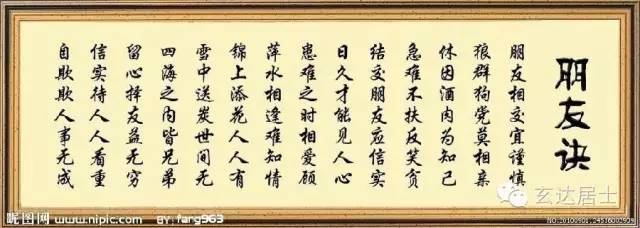 朋友诀
朋友相交宜谨慎
狼群狗党莫相亲
休因酒肉为知己
急难不扶反笑贫
结交朋友应信实
日久才能见人心
患难之时相爱顾
萍水相逢难知情
锦上添花人人有
雪中送炭世间无
四海之内皆兄弟
留心择友益无穷
信实待人人看重
自欺欺人事无成
昵图网 www.nipic.com BY: fang963
玄达居士